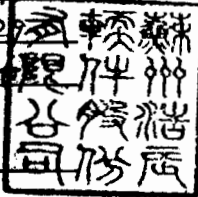 蘇州浩辰
軟件股份
有限公司